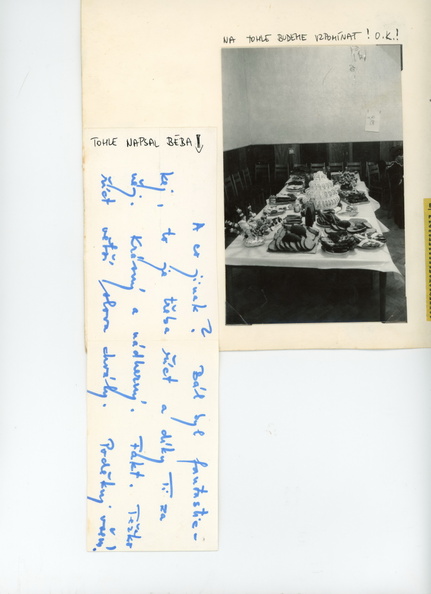 NA TOHLE BUDEME VZPOMÍNAT! O.K.!
TOHLE NAPSAL BĚBA!
A co jinak? Bál byl fantastic-
kej, to je třeba říct a díky Ti za
něj. Krásný a nádherný. Fakt. Těžko
říct větší slova chvály. Poděkuj všem.